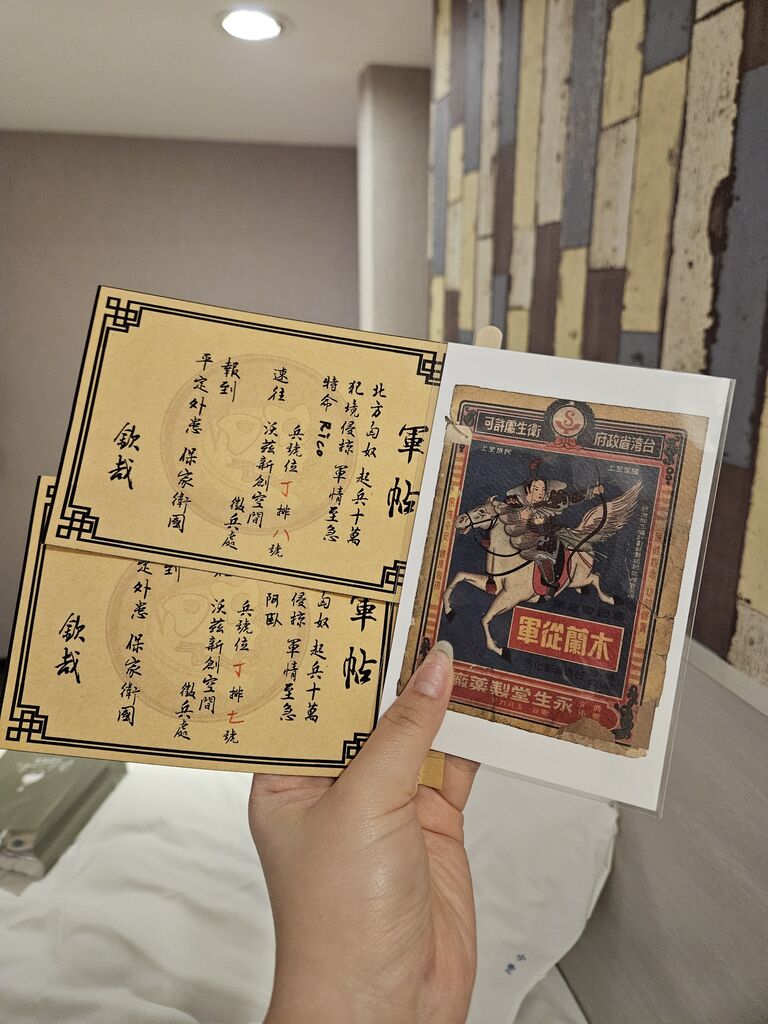 軍帖
北方匈奴 起兵十萬
犯境侵掠 軍情至急
特命 Rico
兵號位 丁 排 八 號
速往 沃茲新創空間
徵兵處
報到
平定外患 保家衛國
欽哉
軍帖
匈奴 起兵十萬
侵掠 軍情至急
阿臥
兵號位 丁 排 七 號
沃茲新創空間
徵兵處
到
定外患 保家衛國
欽哉
台灣省政府
衛生處許可
S
國家至上
民族至上
木蘭從軍
永生堂製藥廠